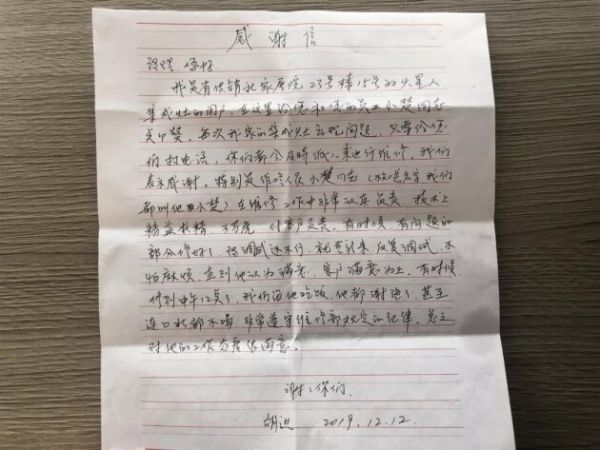 感谢信
经理：您好
我是省供销社家属院23号楼15号的火星人
集成灶的用户，在这里给您和您的员工小楚同志
点个赞。每次我家的集成灶出现问题，只要给您
们打电话，你们都会及时派人来进行维修，我们
表示感谢。特别是维修人员小楚同志（
都叫他小楚）在维修工作中非常认真负责，技术上
精益求精，不马虎，对客户负责。有时候，有问题的
部分修好了，试调试还不行，就重新来，反复调试，不
怕麻烦，直到他认为满意、客户满意为止，有时候
修到中午12点了，我们留他吃饭，他都谢绝了，甚至
连口水都不喝，非常遵守维修部规定的纪律，总之
对他的工作态度很满意。
谢谢你们
2019.12.12.